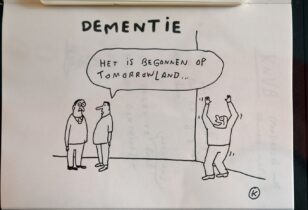 DEMENTIE
HET IS BEGONNEN OP
TOMORROWLAND...
K